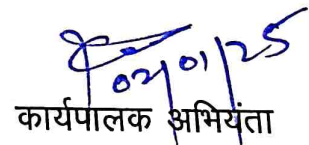 02/01/25
कार्यपालक अभियंता